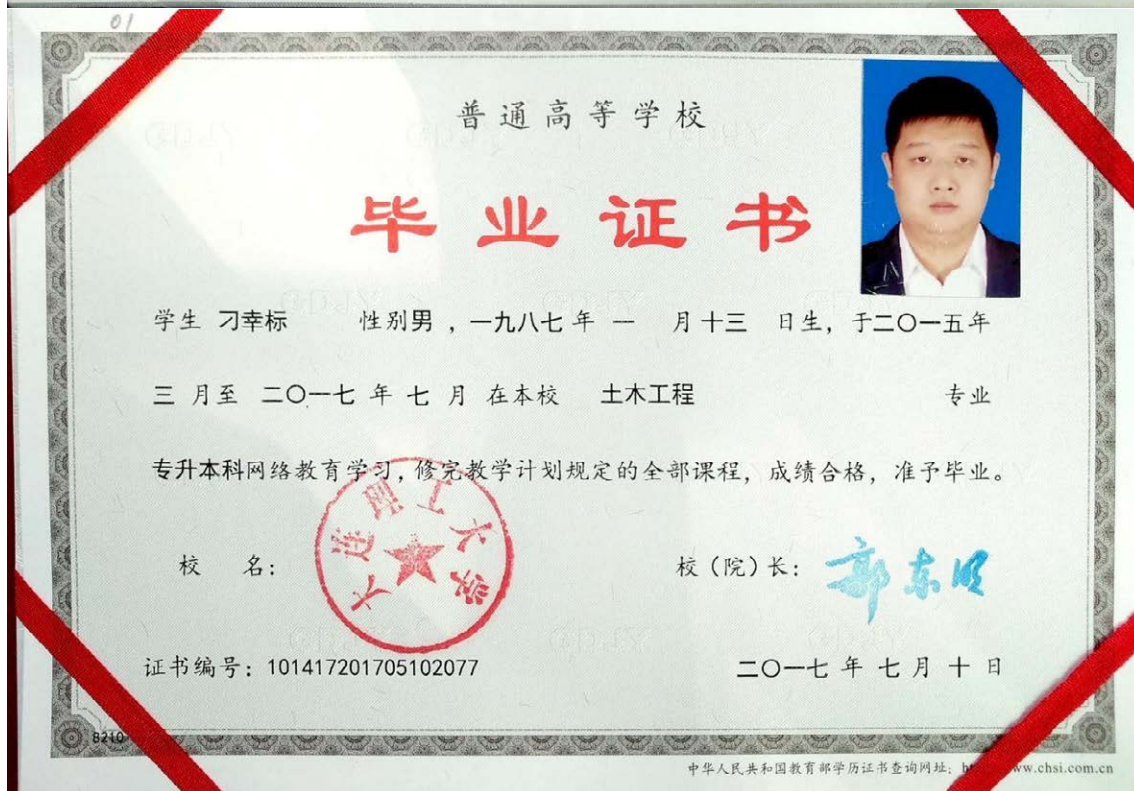 01
普通高等学校
毕业证书
学生 刁幸标 性别男 ，一九八七 年 一 月 十三 日生，于二〇一五年
三 月至 二〇一七 年 七 月 在本校 土木工程 专业
专升本科网络教育学习，修完教学计划规定的全部课程，成绩合格，准予毕业。
校 名：
大连理工大学
校（院）长：
郭东明
证书编号：101417201705102077
二〇一七 年 七 月 十 日
8210
中华人民共和国教育部学历证书查询网址：ww.chsi.com.cn